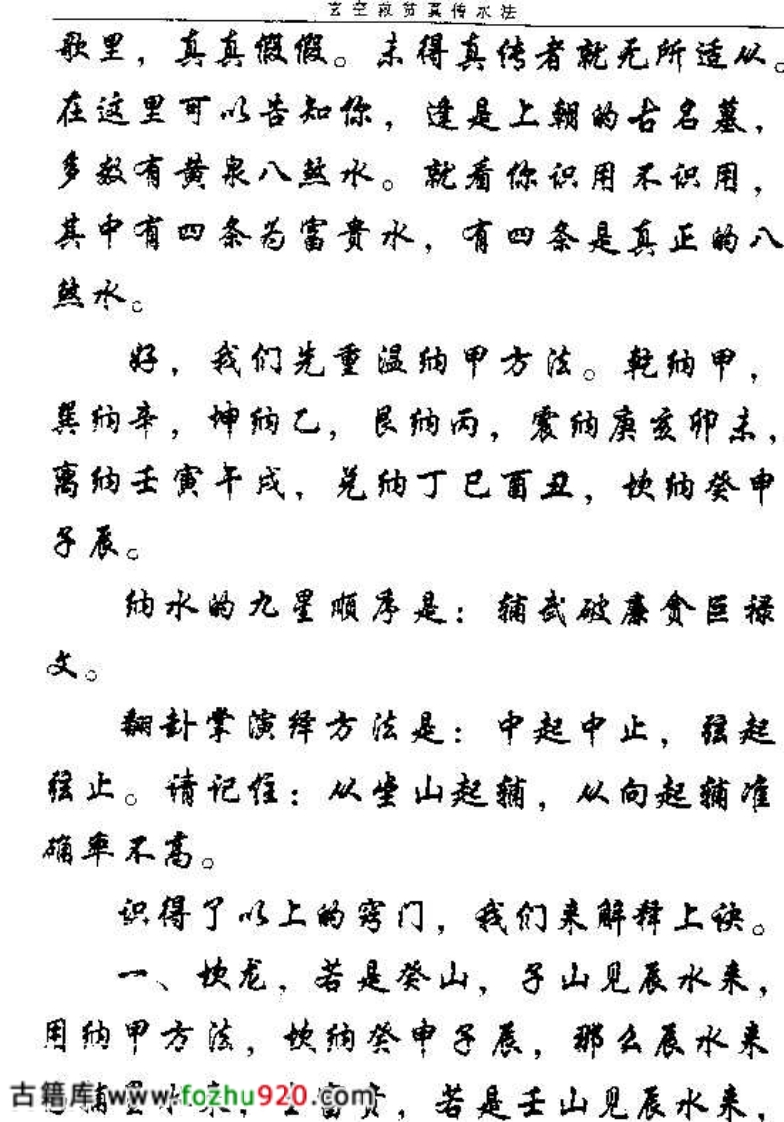 玄空救贫真传水法
歌里，真真假假。未得真传者就无所适从。
在这里可以告知你，逢是上朝的古名墓，
多数有黄泉八煞水。就看你识用不识用，
其中有四条为富贵水，有四条是真正的八
煞水。
好，我们先重温纳甲方法。乾纳甲，
巽纳辛，坤纳乙，艮纳丙，震纳庚亥卯未，
离纳壬寅午戌，兑纳丁巳酉丑，坎纳癸申
子辰。
纳水的九星顺序是：辅武破廉贪巨禄
文。
翻卦掌演绎方法是：中起中止，弦起
弦止。请记住：从坐山起辅，从向起辅准
确率不高。
识得了以上的窍门，我们来解释上诀。
一、坎龙，若是癸山，子山见辰水来，
用纳甲方法，坎纳癸申子辰，那么辰水来
辅星水来，富贵，若是壬山见辰水来，
古籍库 www.fozhu920.com